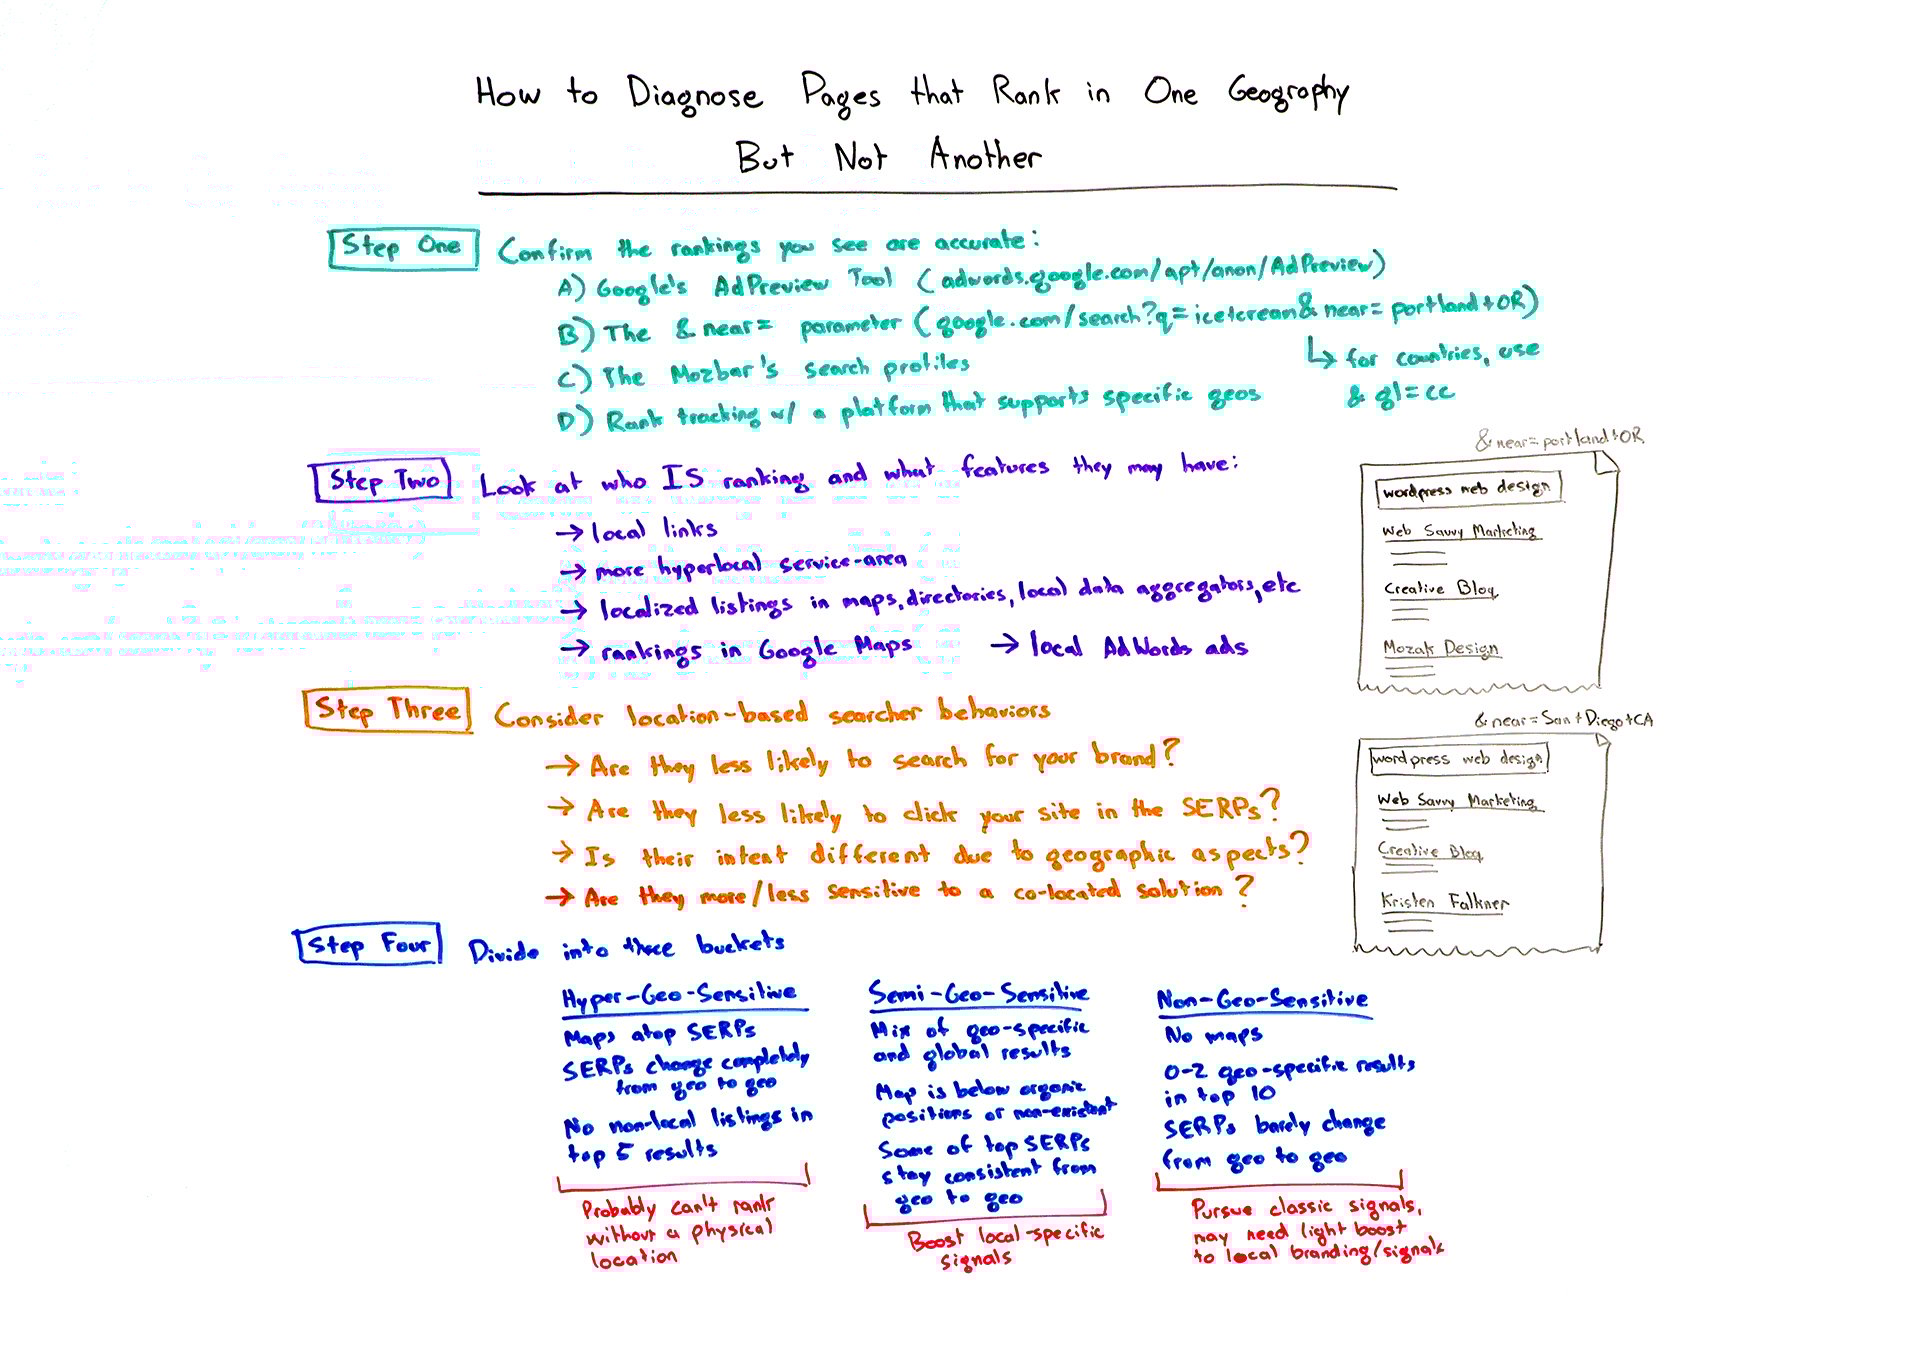 How to Diagnose Pages that Rank in One Geography
But Not Another
Step One
Confirm the rankings you see are accurate:
A) Google's AdPreview Tool (adwords.google.com/apt/anon/AdPreview)
B) The &near= parameter (google.com/search?q=ice+cream&near=portland+OR)
↳ for countries, use
&gl=cc
C) The Mozbar's search profiles
D) Rank tracking w/ a platform that supports specific geos
Step Two
Look at who IS ranking and what features they may have:
→ local links
→ more hyperlocal service-area
→ localized listings in maps, directories, local data aggregators, etc
→ rankings in Google Maps → local AdWords ads
&near=portland+OR
wordpress web design
Web Savvy Marketing
Creative Blog
Mozak Design
Step Three
Consider location-based searcher behaviors
→ Are they less likely to search for your brand?
→ Are they less likely to click your site in the SERPs?
→ Is their intent different due to geographic aspects?
→ Are they more/less sensitive to a co-located solution?
&near=San+Diego+CA
wordpress web design
Web Savvy Marketing
Creative Bloq
Kristen Falkner
Step Four
Divide into three buckets
Hyper-Geo-Sensitive
Maps atop SERPs
SERPs change completely
from geo to geo
No non-local listings in
top 5 results
Probably can't rank
without a physical
location
Semi-Geo-Sensitive
Mix of geo-specific
and global results
Map is below organic
positions or non-existent
Some of top SERPs
stay consistent from
geo to geo
Boost local-specific
signals
Non-Geo-Sensitive
No maps
0-2 geo-specific results
in top 10
SERPs barely change
from geo to geo
Pursue classic signals,
may need light boost
to local branding/signals